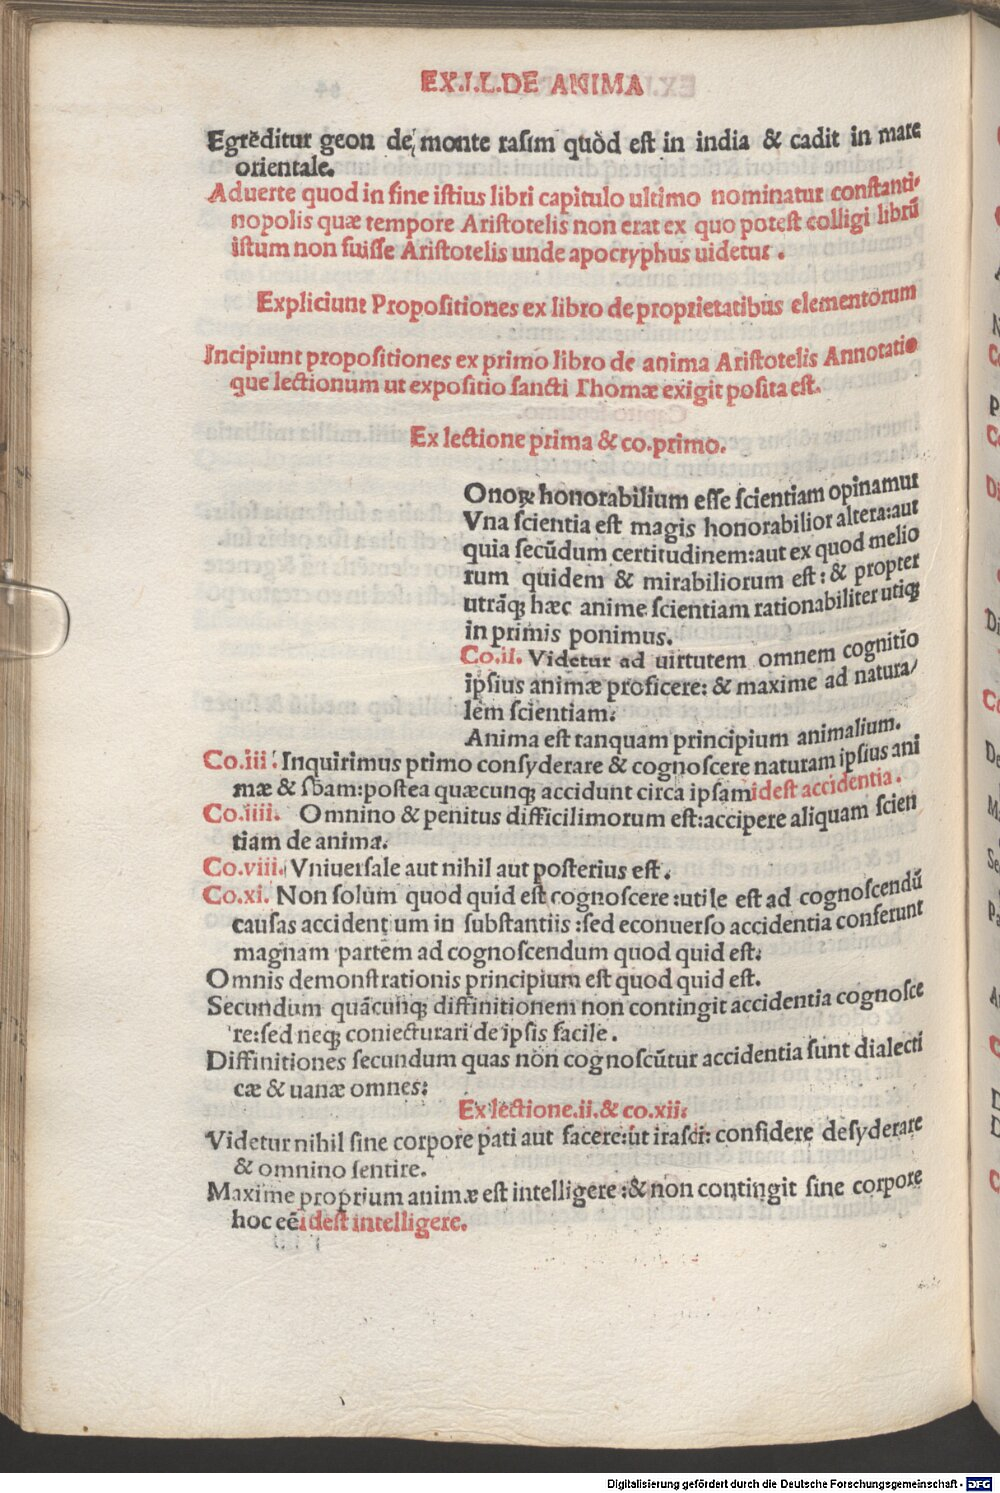 EX.I.L.DE ANIMA
Egrēditur geon de monte rasim quòd est in india & cadit in mare
orientale.
Aduerte quod in fine istius libri capitulo ultimo nominatur constanti-
nopolis quæ tempore Aristotelis non erat ex quo potest colligi librū
istum non fuisse Aristotelis unde apocryphus uidetur .
Expliciunt Propositiones ex libro de proprietatibus elementorum
Incipiunt propositiones ex primo libro de anima Aristotelis Annotatio
que lectionum ut expositio sancti Thomæ exigit posita est.
Ex lectione prima & co.primo.
Onoꝝ honorabilium esse scientiam opinamur
Vna scientia est magis honorabilior altera:aut
quia secūdum certitudinem:aut ex quod melio
rum quidem & mirabiliorum est: & propter
utrāqꝫ hæc anime scientiam rationabiliter utiqꝫ
in primis ponimus.
Co.ii. Videtur ad uirtutem omnem cognitio
ipsius animæ proficere: & maxime ad natura/
lem scientiam.
Anima est tanquam principium animalium.
Co.iii. Inquirimus primo consyderare & cognoscere naturam ipsius ani
mæ & sb̄am:postea quæcunqꝫ accidunt circa ipsam idest accidentia.
Co.iiii. Omnino & penitus difficilimorum est:accipere aliquam scien
tiam de anima.
Co.viii. Vniuersale aut nihil aut posterius est.
Co.xi. Non solum quod quid est cognoscere :utile est ad cognoscendū
causas accidentium in substantiis :sed econuerso accidentia conferunt
magnam partem ad cognoscendum quod quid est.
Omnis demonstrationis principium est quod quid est.
Secundum quācunqꝫ diffinitionem non contingit accidentia cognosce
re:sed neqꝫ coniecturari de ipsis facile.
Diffinitiones secundum quas non cognoscūtur accidentia sunt dialecti
cæ & uanæ omnes:
Ex lectione.ii.& co.xii.
Videtur nihil sine corpore pati aut facere:ut irasci: considere desyderare
& omnino sentire.
Maxime proprium animæ est intelligere :& non contingit sine corpore
hoc eē idest intelligere.
Digitalisierung gefördert durch die Deutsche Forschungsgemeinschaft - DFG